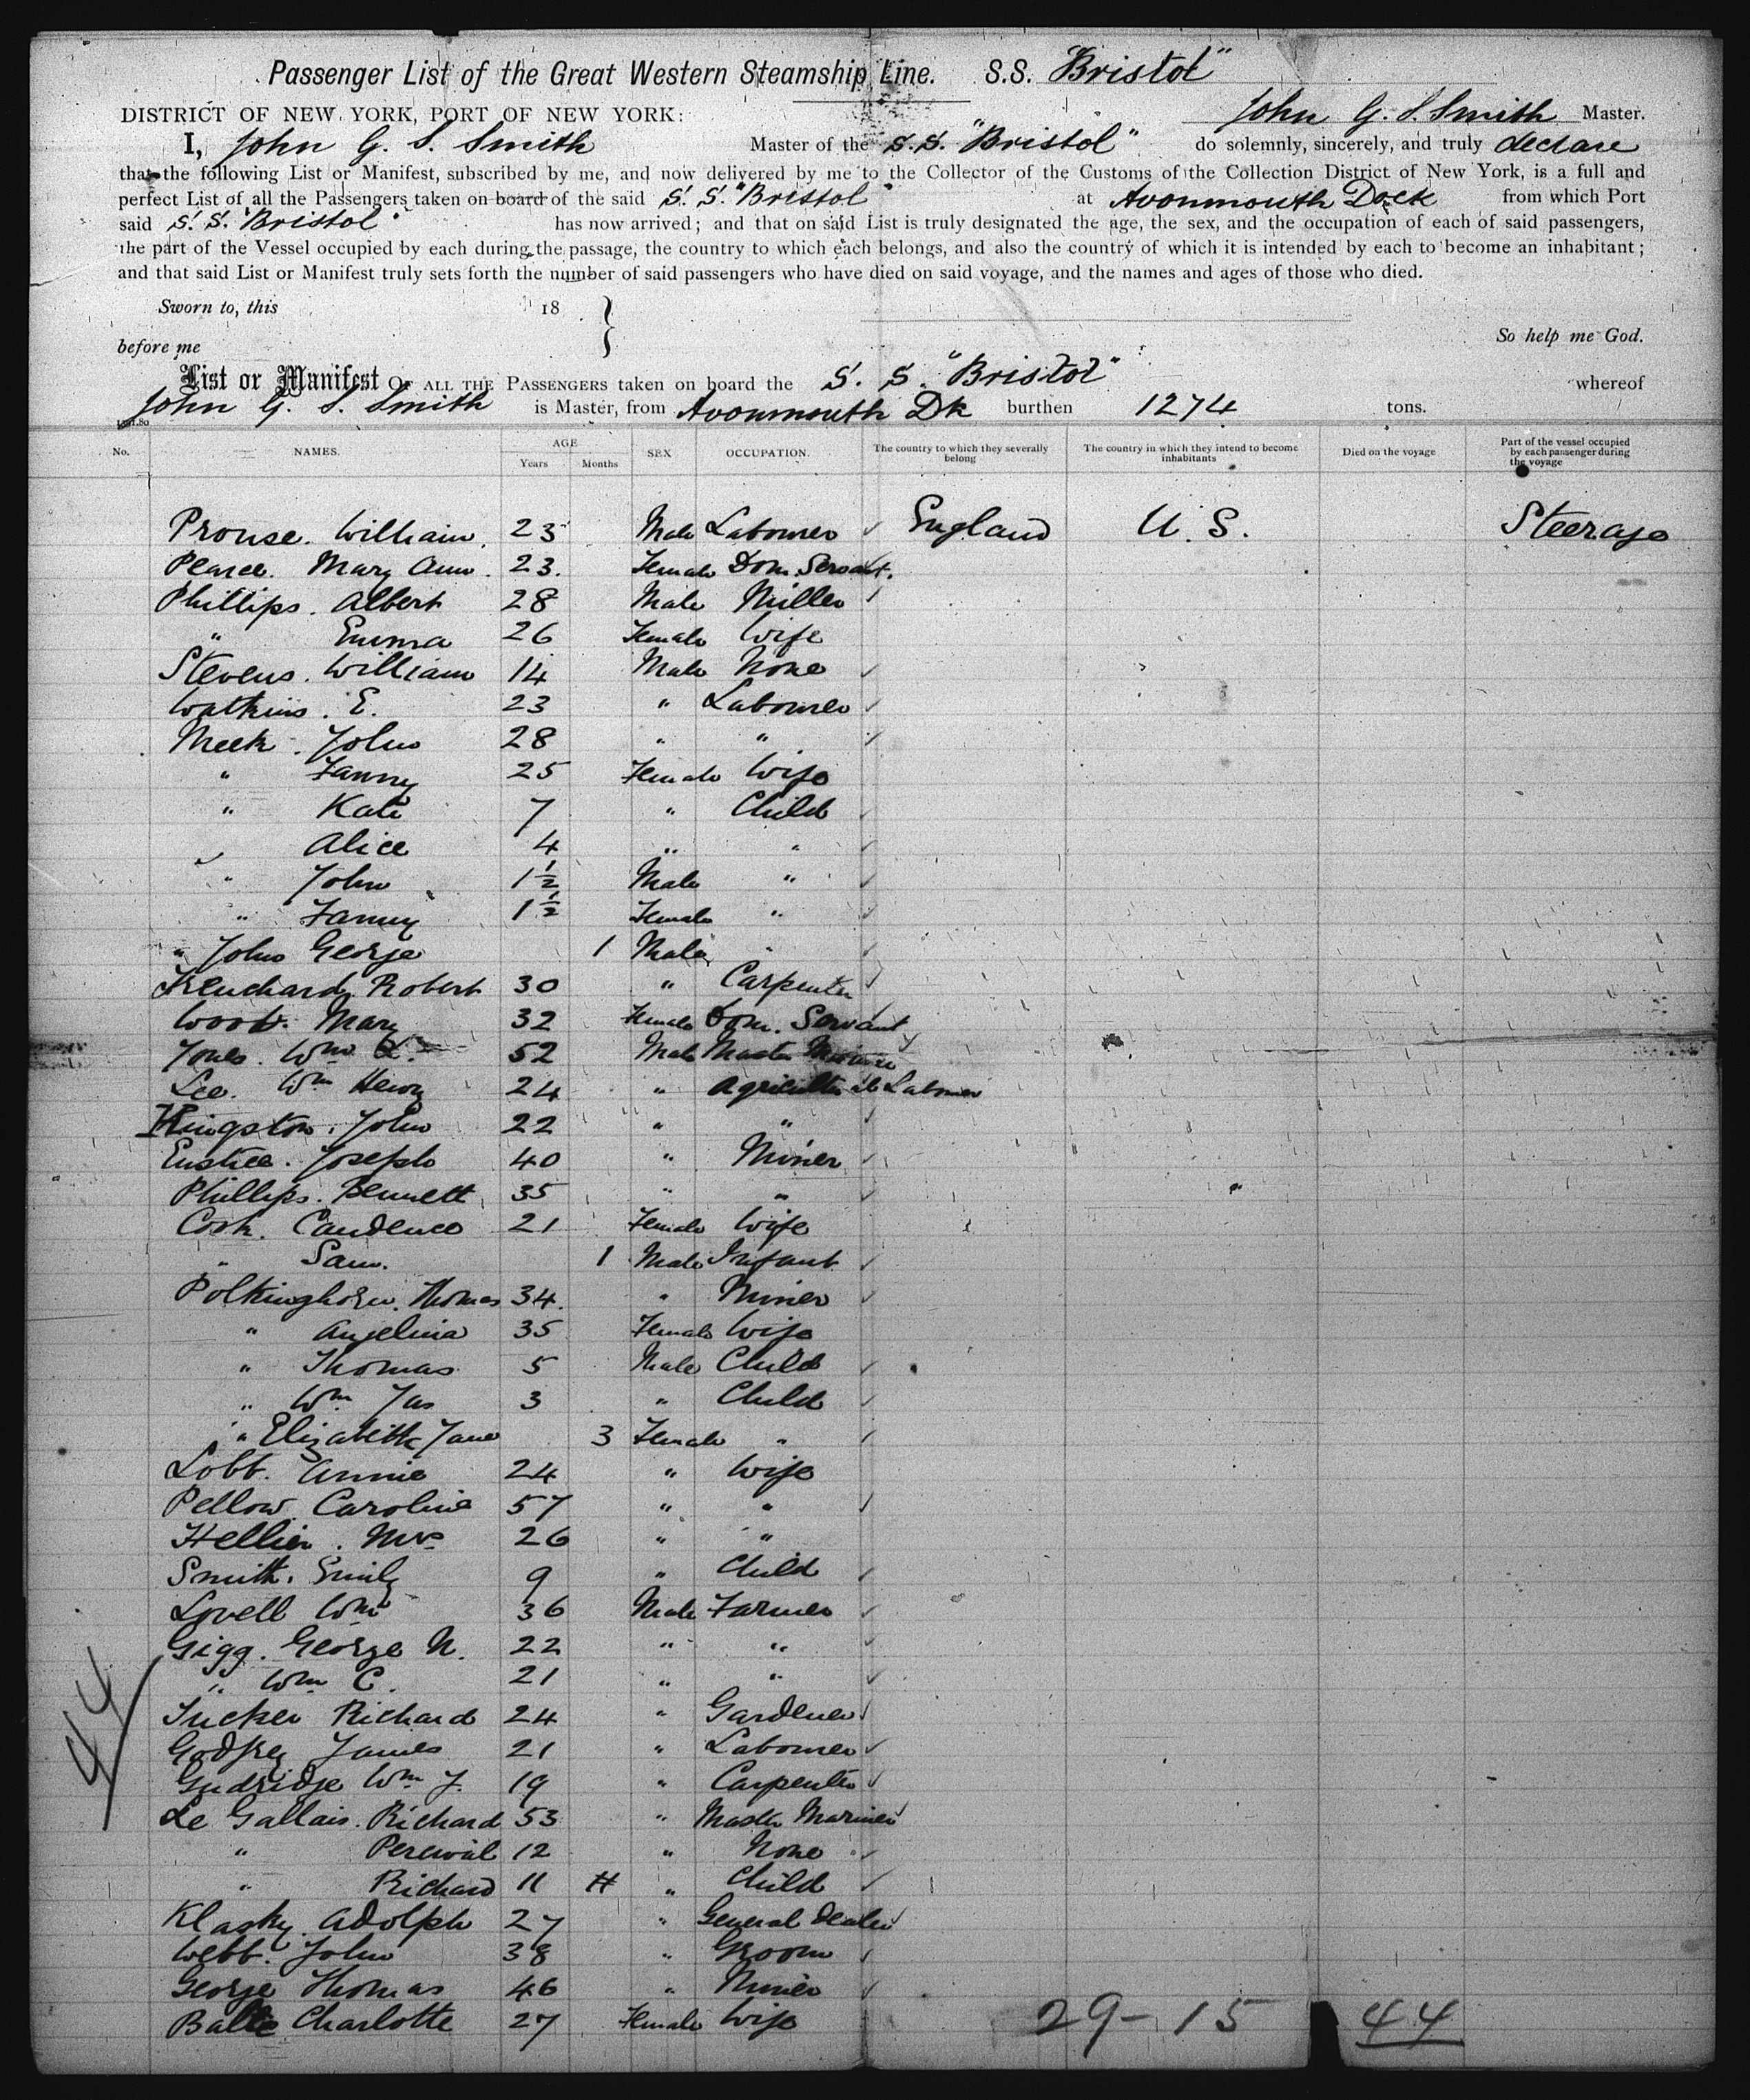 Passenger List of the Great Western Steamship Line. S.S. "Bristol"
DISTRICT OF NEW YORK, PORT OF NEW YORK: John G. S. Smith Master.
I, John G. S. Smith Master of the S.S. "Bristol" do solemnly, sincerely, and truly declare
that the following List or Manifest, subscribed by me, and now delivered by me to the Collector of the Customs of the Collection District of New York, is a full and
perfect List of all the Passengers taken on board of the said S. S. "Bristol" at Avonmouth Dock from which Port
said S. S. "Bristol" has now arrived; and that on said List is truly designated the age, the sex, and the occupation of each of said passengers,
the part of the Vessel occupied by each during the passage, the country to which each belongs, and also the country of which it is intended by each to become an inhabitant;
and that said List or Manifest truly sets forth the number of said passengers who have died on said voyage, and the names and ages of those who died.
Sworn to, this 18
So help me God.
before me
List or Manifest OF ALL THE PASSENGERS taken on board the S. S. "Bristol" whereof
John G. S. Smith is Master, from Avonmouth Dk burthen 1274 tons.
No. NAMES. AGE Years Months SEX OCCUPATION. The country to which they severally belong The country in which they intend to become inhabitants Died on the voyage Part of the vessel occupied by each passenger during the voyage
Prouse. William. 23 Male Labourer England U. S. Steerage
Pearce. Mary Ann. 23. Female Dom. Servant.
Phillips. Albert 28 Male Miller
" Emma 26 Female Wife
Stevens. William 14 Male None
Watkins. E. 23 " Labourer
Meek. John 28 " "
" Fanny 25 Female Wife
" Kate 7 " Child
" Alice 4 " "
" John 1½ Male "
" Fanny 1½ Female "
" John George 1 Male "
Trenchard Robert 30 " Carpenter
Wood. Mary 32 Female Dom. Servant
Jones. Wm 52 Male Master Mariner
Lee. Wm Henry 24 " Agricultural Labourer
Kingston. John 22 " "
Eustice. Joseph 40 " Miner
Phillips. Bennett 35 " "
Cock. Caudence 21 Female Wife
" Sam. 1 Male Infant
Polkinghorn. Thomas 34. " Miner
" Angelina 35 Female Wife
" Thomas 5 Male Child
" Wm Jas 3 " Child
" Elizabeth Jane 3 Female "
Lobb. Annie 24 " Wife
Pellow. Caroline 57 " "
Hellier. Mrs 26 " "
Smith. Emily 9 " Child
Lovell Wm 36 Male Farmer
Gigg. George N. 22 " "
" Wm C. 21 " "
Tucker Richard 24 " Gardener
Godfrey James 21 " Labourer
Gudridge Wm J. 19 " Carpenter
Le Gallais. Richard 53 " Master Mariner
" Percival 12 " None
" Richard 11 " Child
Klasky. Adolph 27 " General Dealer
Webb. John 38 " Groom
George Thomas 46 " Miner
Balte Charlotte 27 Female Wife
44
29-15 44